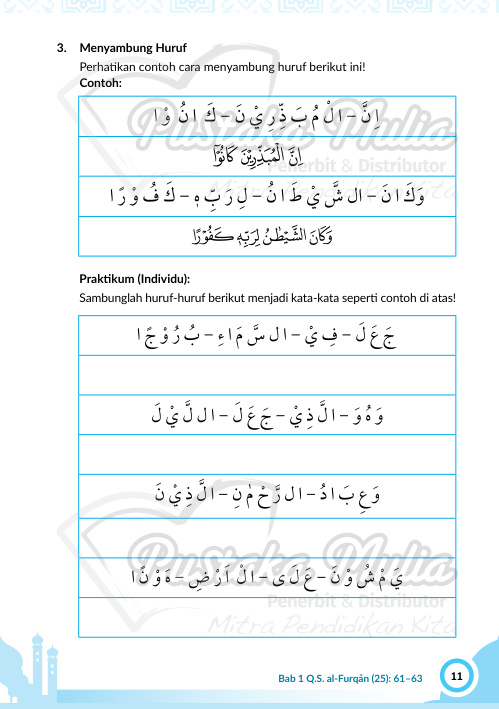 3. Menyambung Huruf
Perhatikan contoh cara menyambung huruf berikut ini!
Contoh:
اِنَّ – ا لْ مُ بَ ذِّ رِ يْ نَ – كَ ا نُ وْ ا
اِنَّ الْمُبَذِّرِيْنَ كَانُوْٓا
وَ كَ ا نَ – ال شَّ يْ طَ ا نُ – لِ رَ بِّ هٖ – كَ فُ وْ رًا
وَكَانَ الشَّيْطٰنُ لِرَبِّهٖ كَفُوْرًا
Praktikum (Individu):
Sambunglah huruf-huruf berikut menjadi kata-kata seperti contoh di atas!
جَ عَ لَ – فِ يْ – ا ل سَّ مَ ا ءِ – بُ رُ وْ جً ا
وَ هُ وَ – ا لَّ ذِ يْ – جَ عَ لَ – ا ل لَّ يْ لَ
وَ عِ بَ ا دُ – ا ل رَّ حْ مٰ نِ – ا لَّ ذِ يْ نَ
يَ مْ شُ وْ نَ – عَ لَ ى – ا لْ اَ رْ ضِ – هَ وْ نًا
Pustaka Mulia
Penerbit & Distributor
Mitra Pendidikan Kita
Bab 1 Q.S. al-Furqān (25): 61–63
11